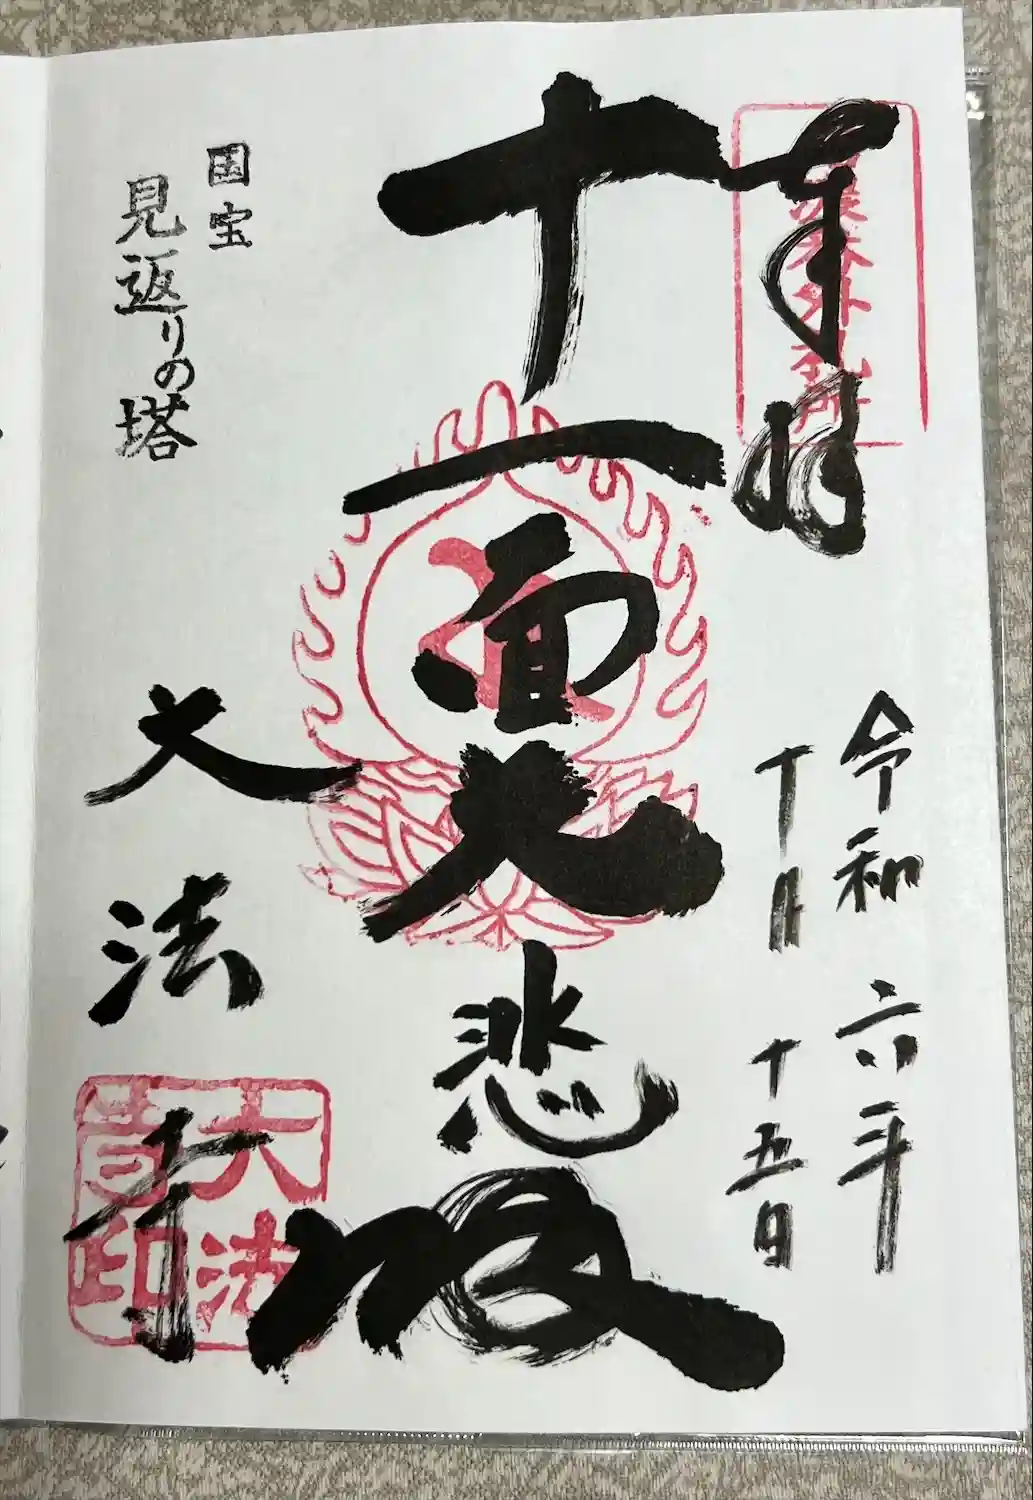 奉拝
信濃番外札所
令和六年
十月十五日
十一面大悲殿
国宝
見返りの塔
大法寺
大法寺印